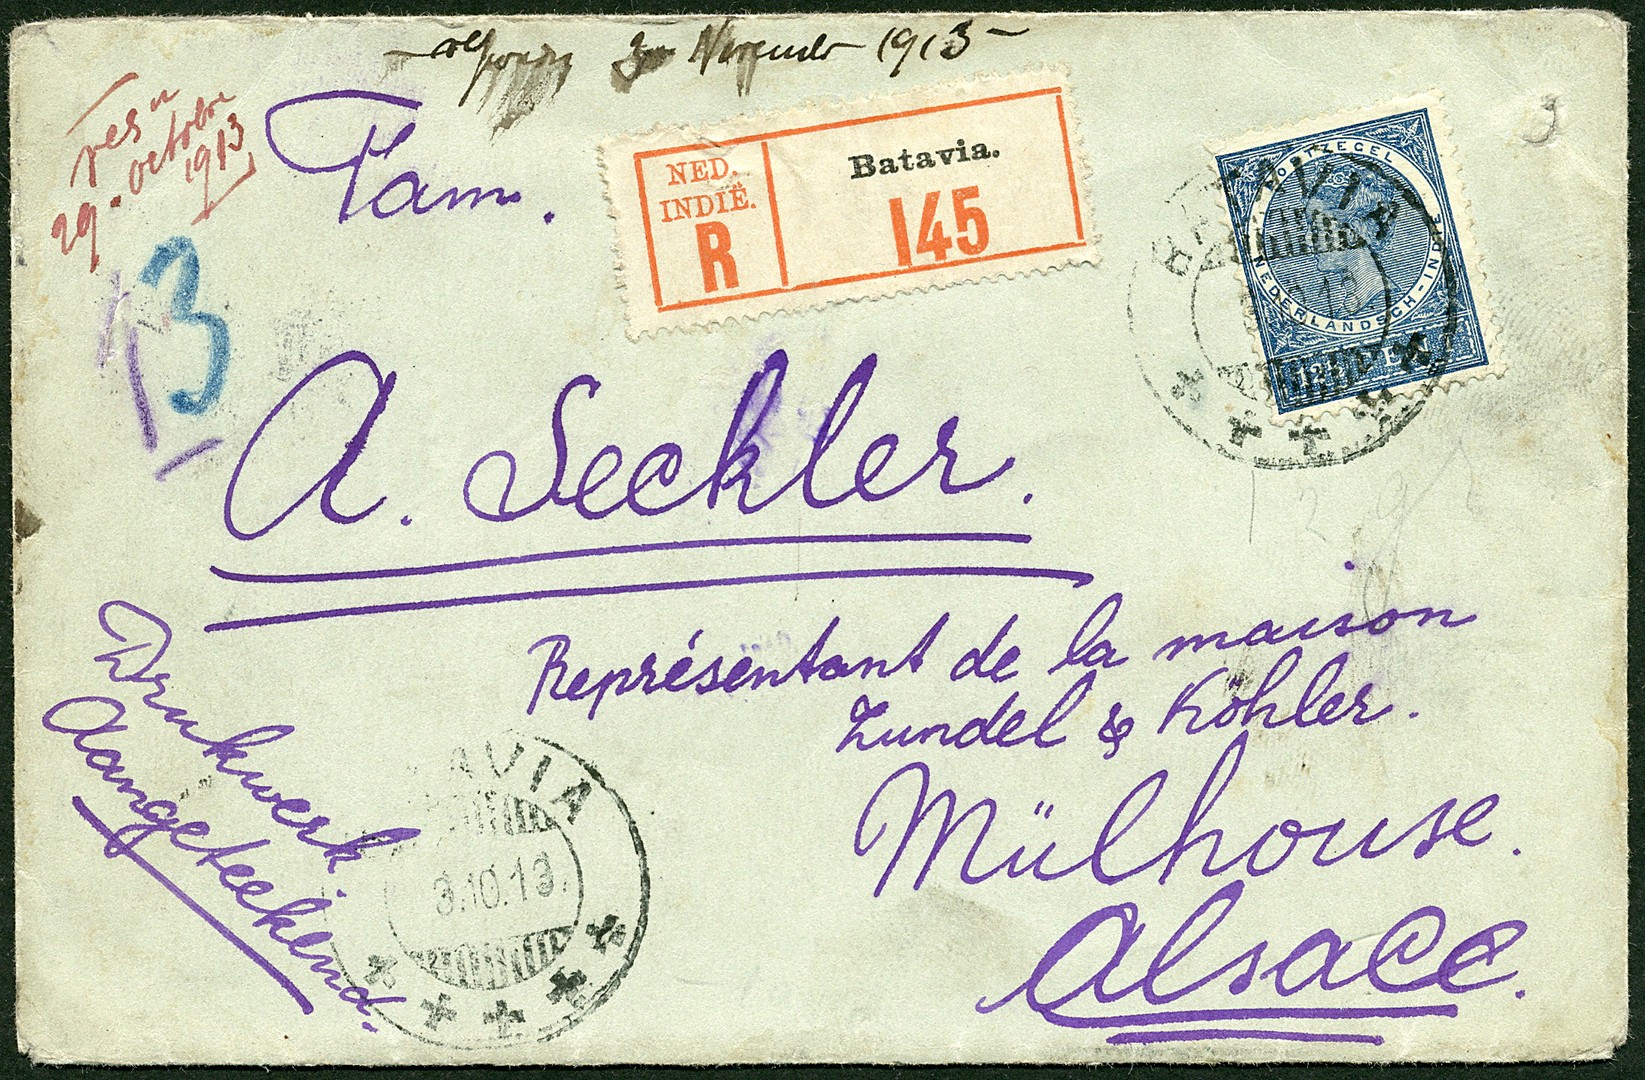 November 1913
res
29. octobre
1913
Tam.
NED.
INDIË.
R
Batavia.
145
POSTZEGEL
NEDERLANDSCH-INDIE
BATAVIA
13
3
3
A. Seckler.
Représentant de la maison
Zundel & Köhler.
Mülhouse.
Alsace.
Drukwerk
Aangeteekend.
AVIA
3.10.13.